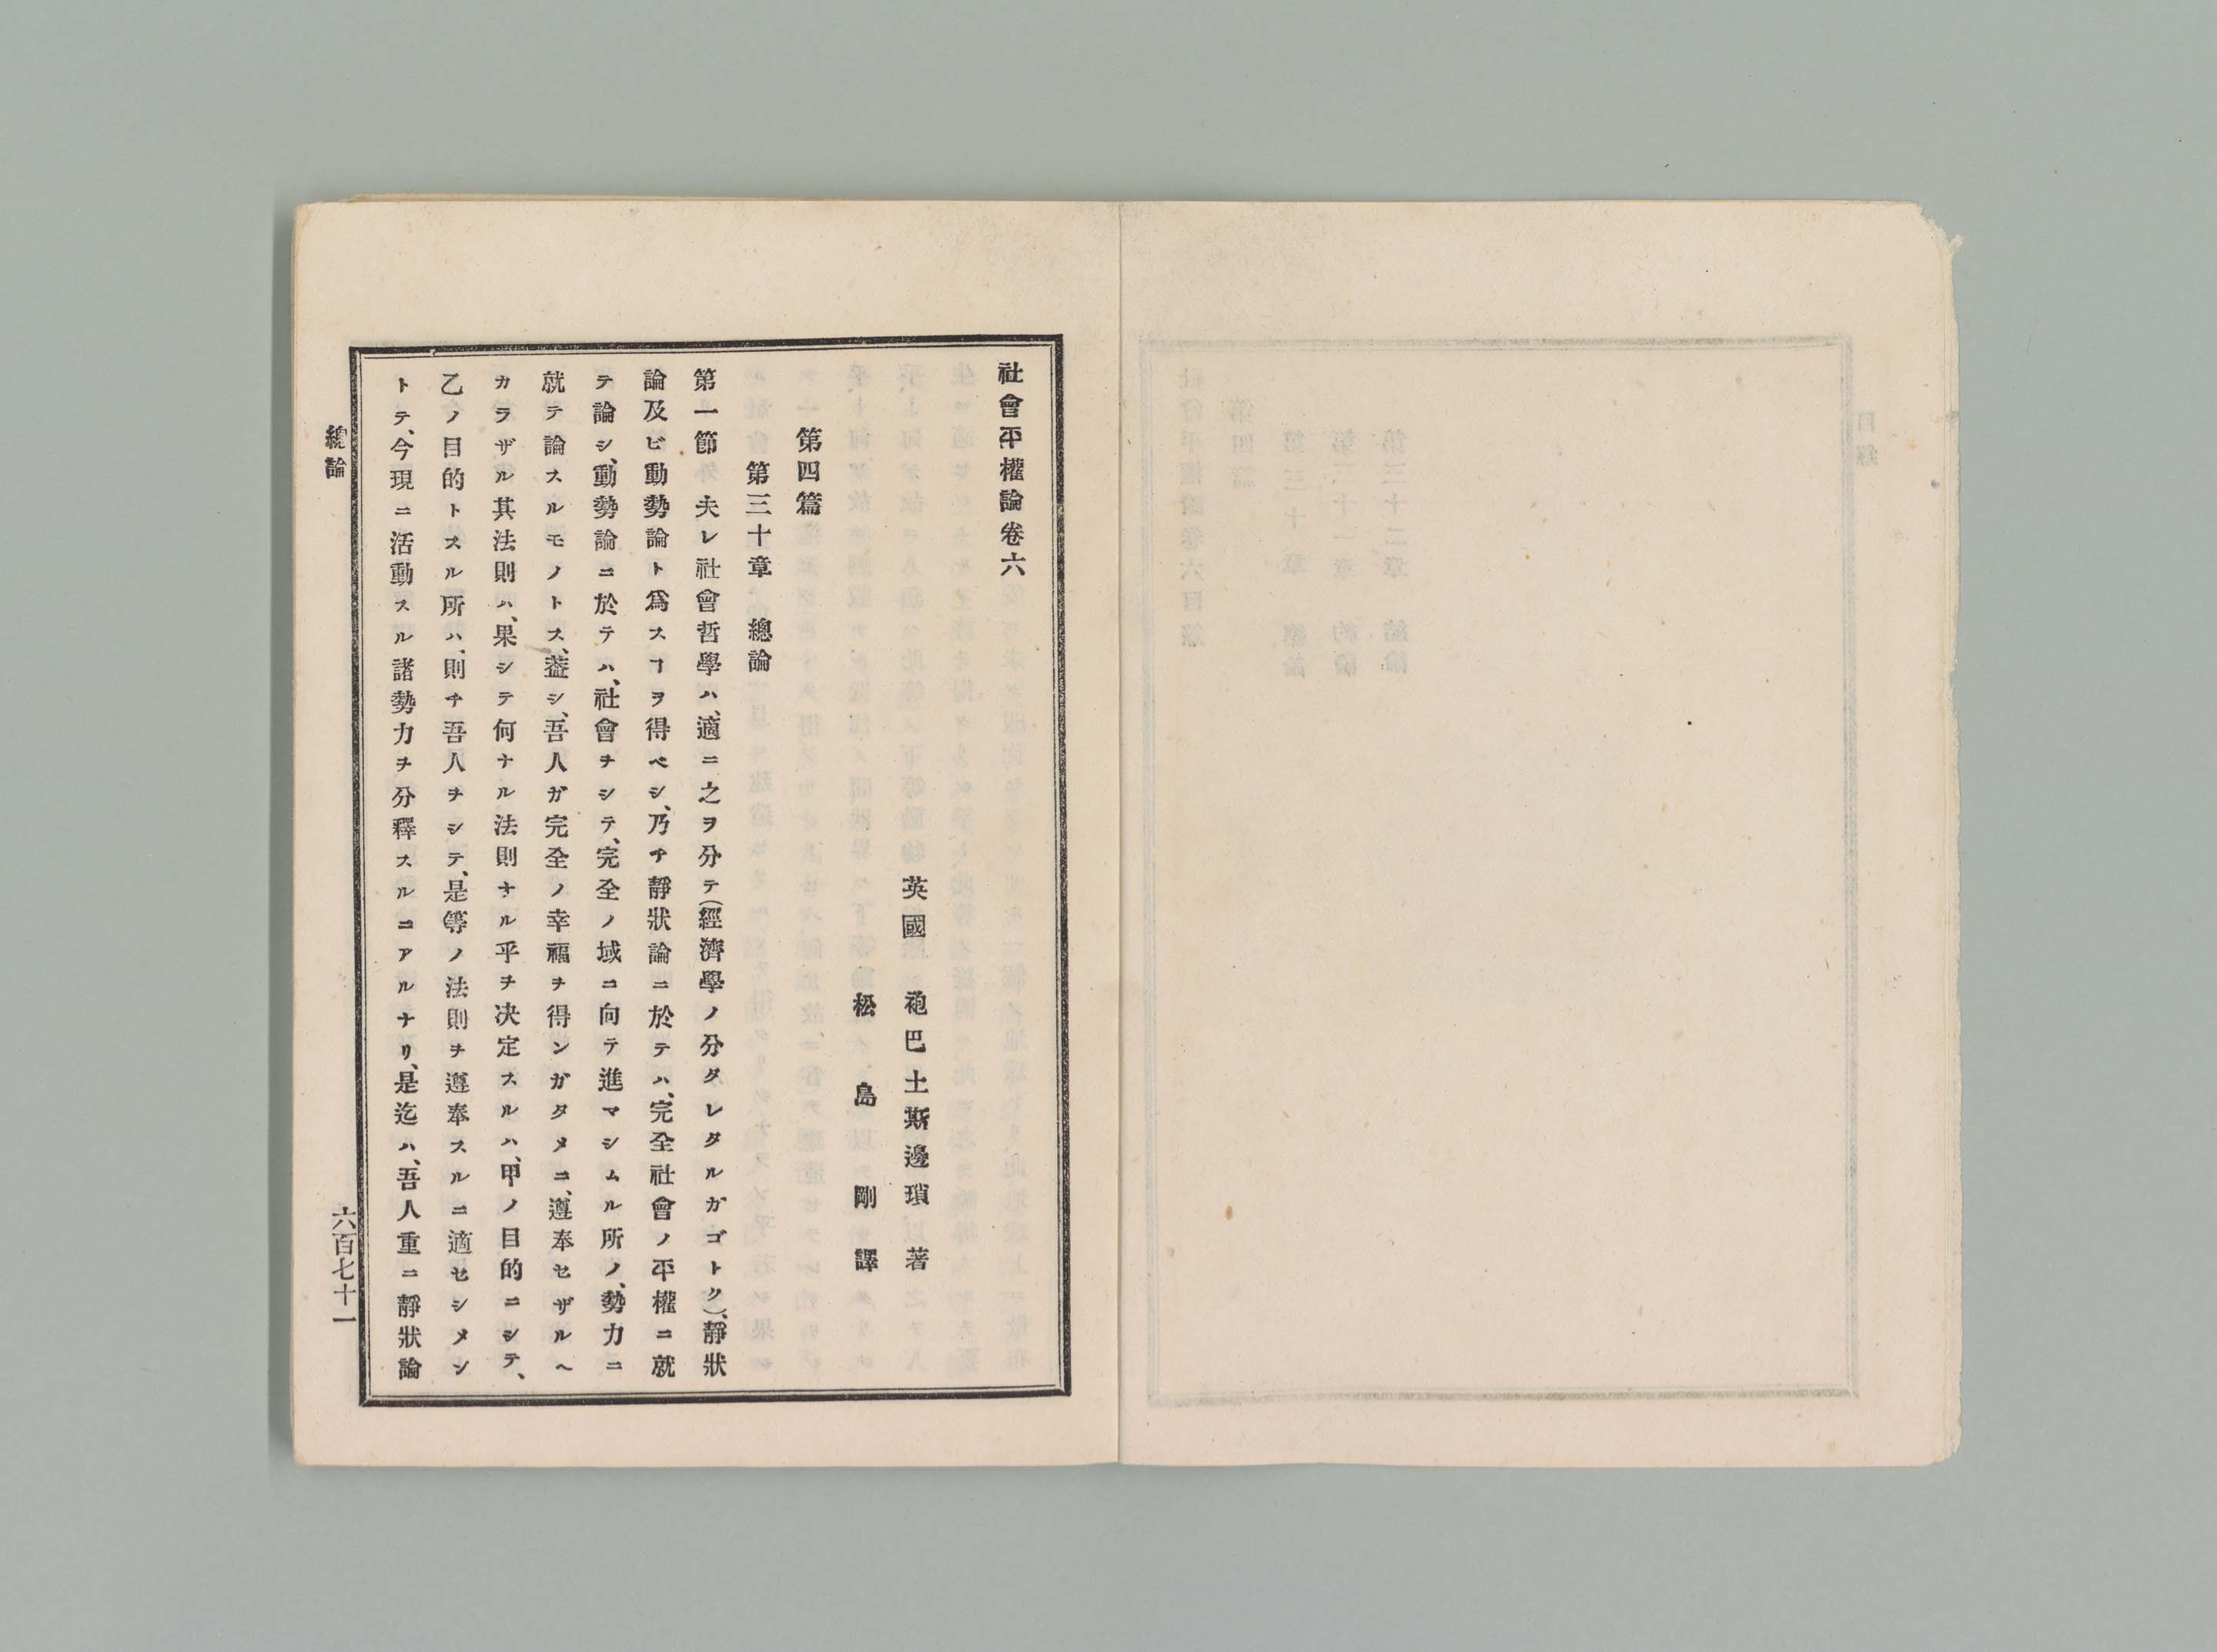 社會平權論卷六
英國 袍巴土斯邊瑣 著
松島剛譯
第四篇
第三十章 總論
第一節 夫レ社會哲學ハ、適ニ之ヲ分テ(經濟學ノ分タレタルガゴトク)、靜狀
論及ビ動勢論ト爲スヿヲ得ベシ、乃チ靜狀論ニ於テハ、完全社會ノ平權ニ就
テ論シ、動勢論ニ於テハ、社會ヲシテ、完全ノ域ニ向テ進マシムル所ノ、勢力ニ
就テ論スルモノトス、蓋シ、吾人ガ完全ノ幸福ヲ得ンガタメニ、遵奉セザルヘ
カラザル其法則ハ、果シテ何ナル法則ナル乎ヲ决定スルハ、甲ノ目的ニシテ、
乙ノ目的トスル所ハ、則チ吾人ヲシテ、是等ノ法則ヲ遵奉スルニ適セシメン
トテ、今現ニ活動スル諸勢力ヲ分釋スルニアルナリ、是迄ハ、吾人重ニ靜狀論
總論
六百七十一